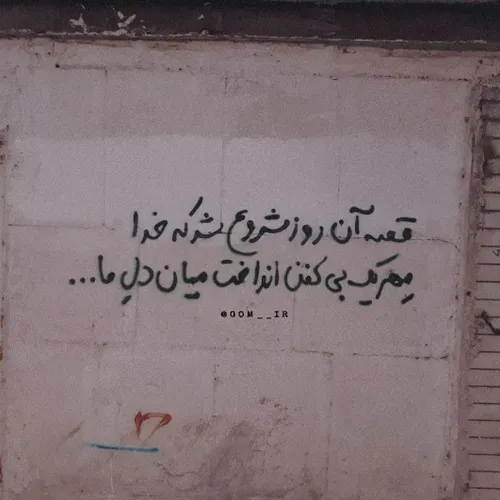 قصه آن روز شروع شد که خدا
مهر یک بی کفن انداخت میان دلِ ما...
@GOM__IR